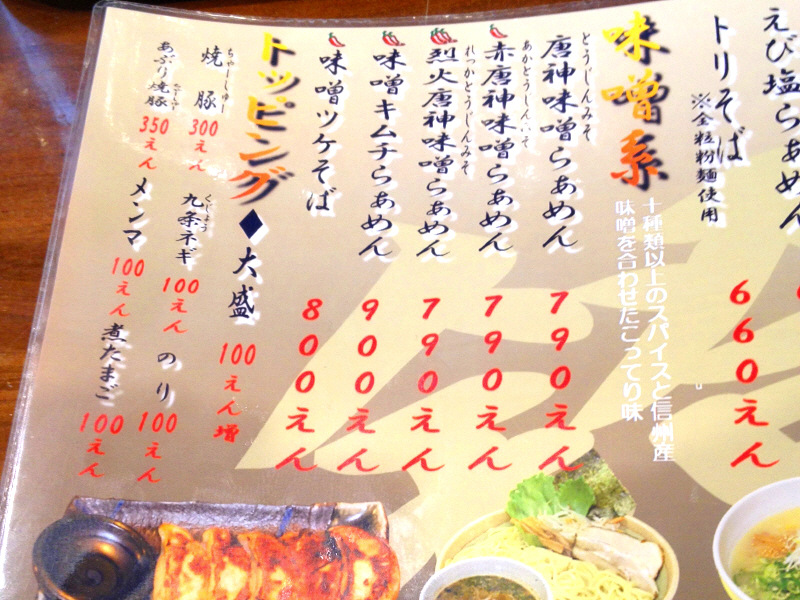 えび塩らあめん
トリそば
※全粒粉麺使用
660えん
味噌系
十種類以上のスパイスと信州産
味噌を合わせたこってり味。
とうじんみそ
唐神味噌らあめん
790えん
あかとうじんみそ
赤唐神味噌らあめん
790えん
れっかとうじんみそ
烈火唐神味噌らあめん
790えん
味噌キムチらあめん
900えん
味噌ツケそば
800えん
トッピング◆大盛
100えん増
ちゃーしゅー
焼豚
300えん
くじょう
九条ネギ
100えん
のり
100えん
あぶり焼豚
350えん
メンマ
100えん
煮たまご
100えん